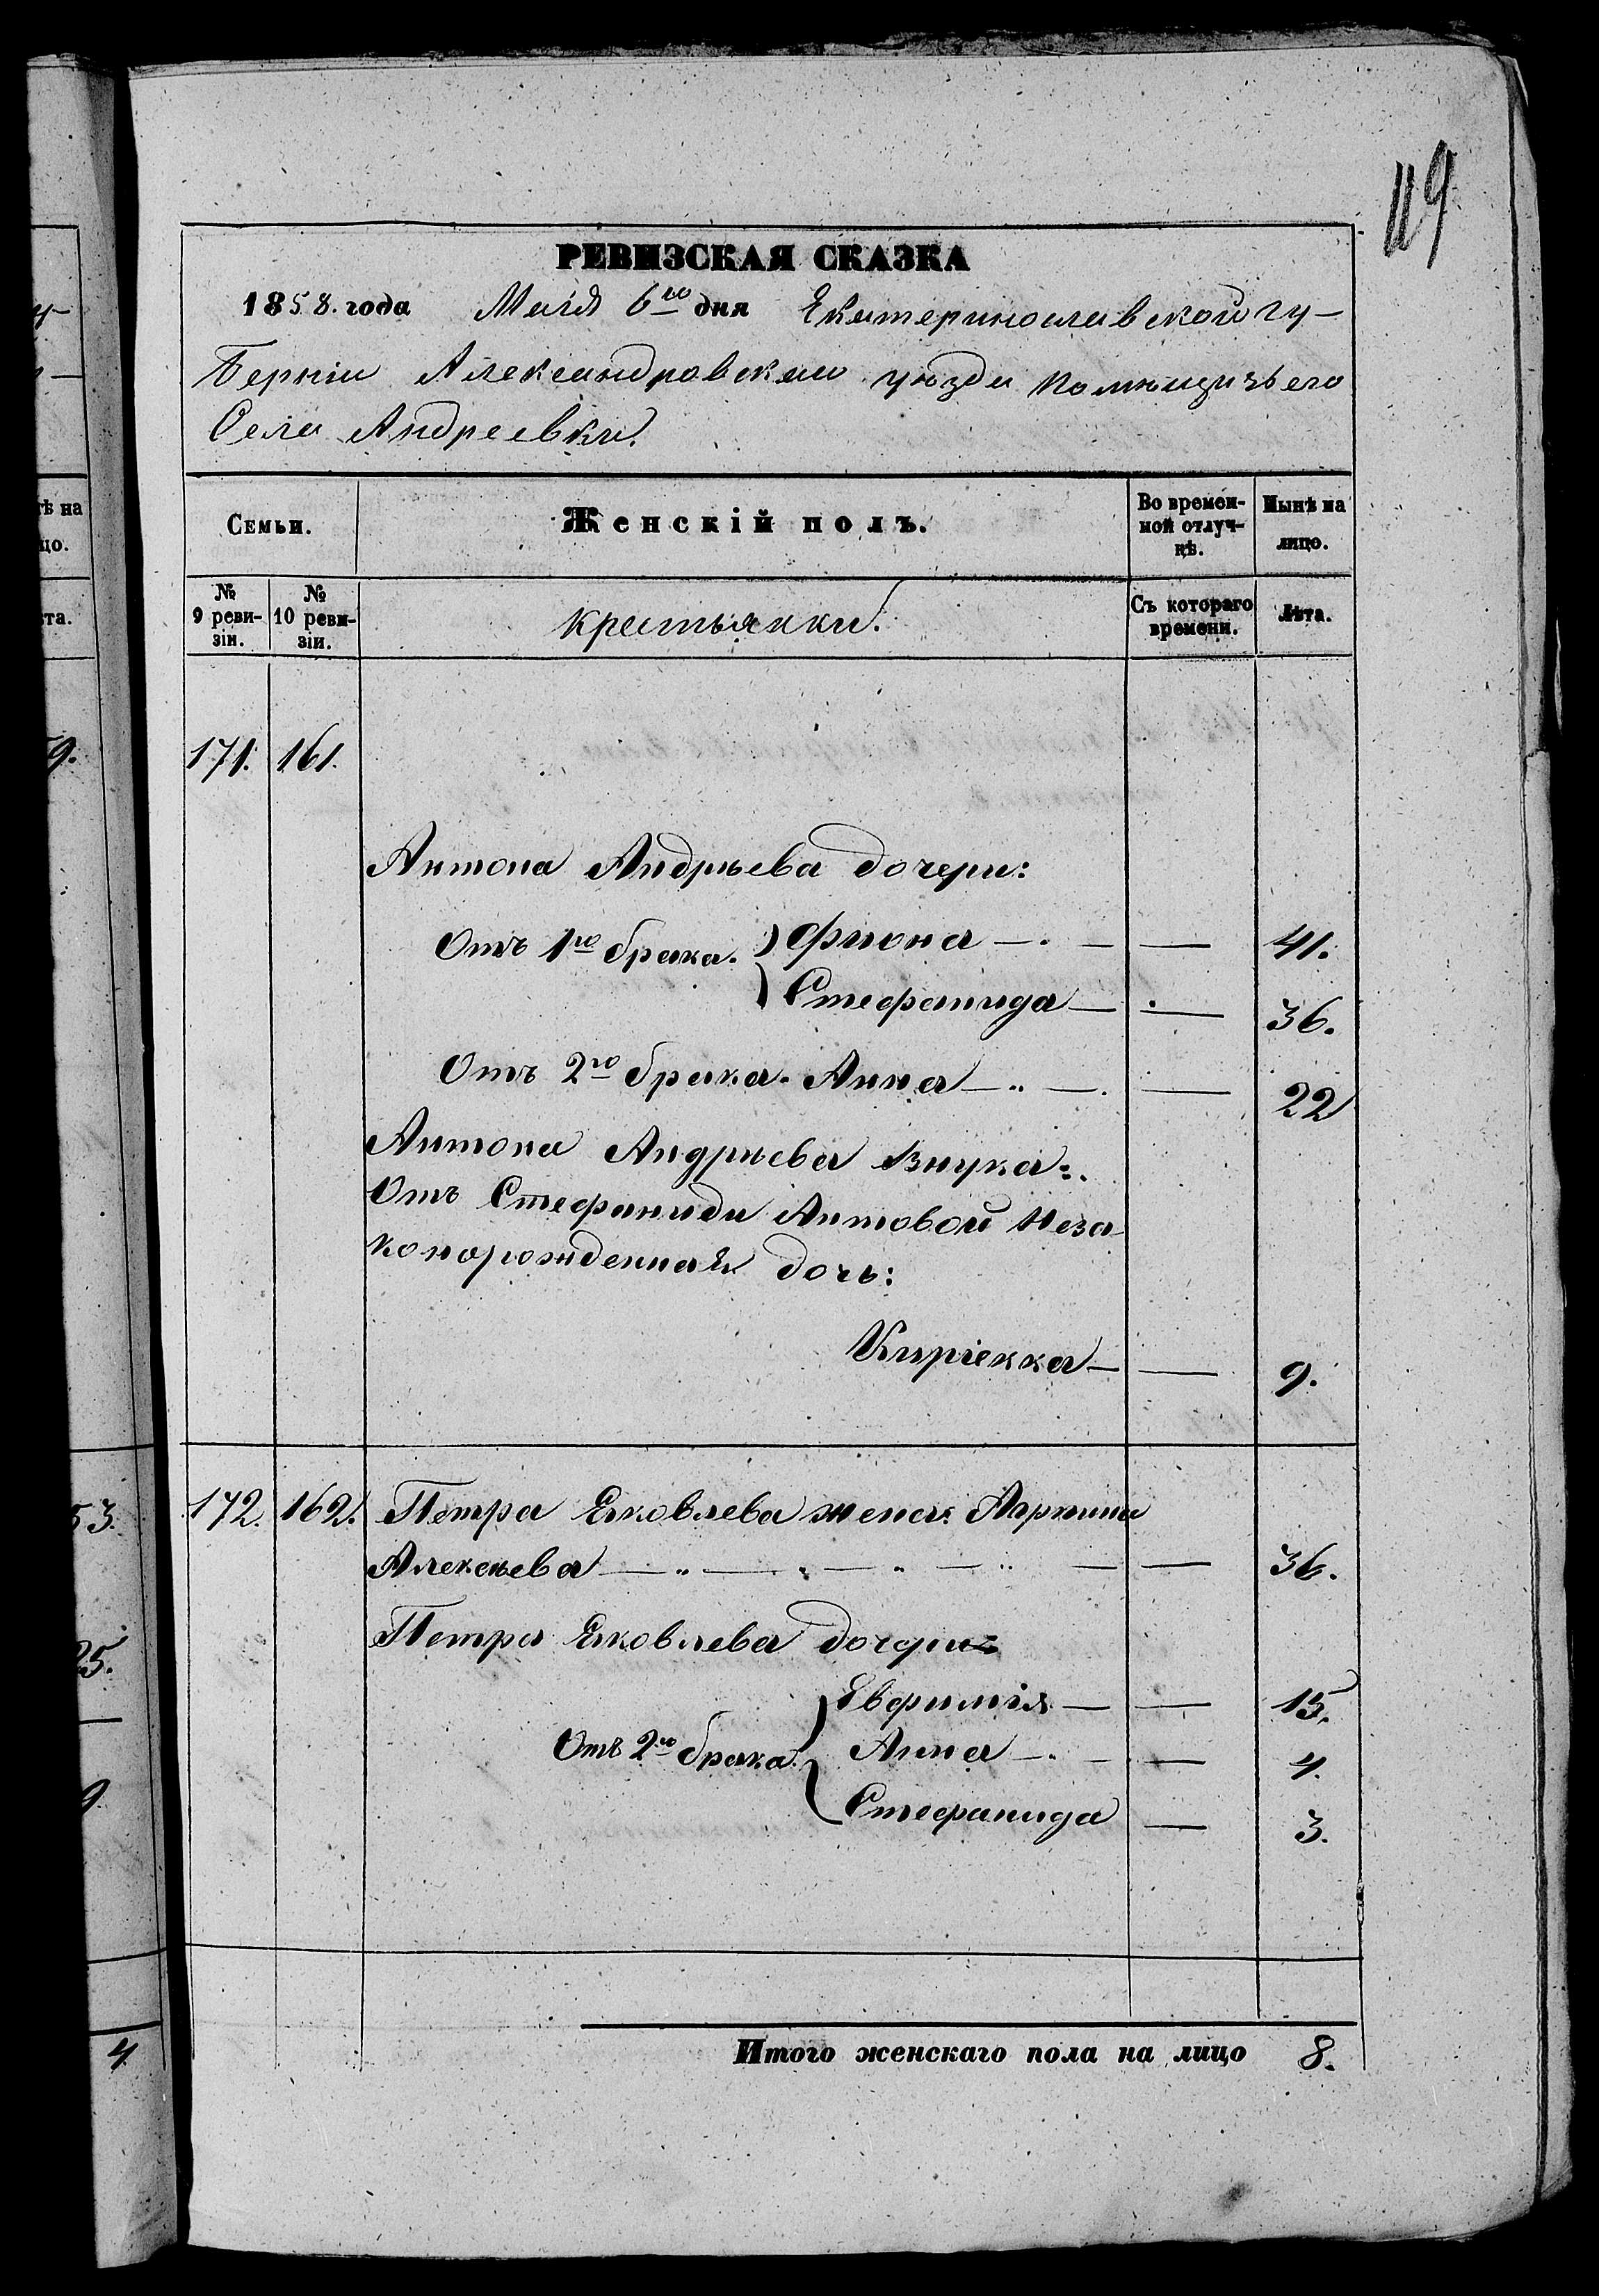 119
РЕВИЗСКАЯ СКАЗКА
1858. года Маія 6го дня Екатеринославской гу-
берніи Александровскаго уѣзда помѣщичьего
Села Андреевки.
Семьи. Женскій полъ. Во времен-ной отлуч-кѣ. Нынѣ на лицо.
№ 9 реви-зіи. № 10 реви-зіи. крестьянки. Съ котораго времени. Лѣта.
171. 161.
Антона Андрѣева дочери:
Отъ 1го брака. Фиона — 41.
Стефанида — 36.
Отъ 2го брака. Анна — 22
Антона Андрѣева внука:
Отъ Стефаниди Антовой Неза-
конорожденная дочь:
Киріекка — 9.
172. 162. Петра Яковлева жена:
Алексѣева — 36.
Петра Яковлева дочери:
Евфимія — 15.
Отъ 2го брака. Анна — 4.
Стефанида — 3.
Итого женскаго пола на лицо 8.
ѣ на
цо.
та.
9.
53.
25.
9.
4